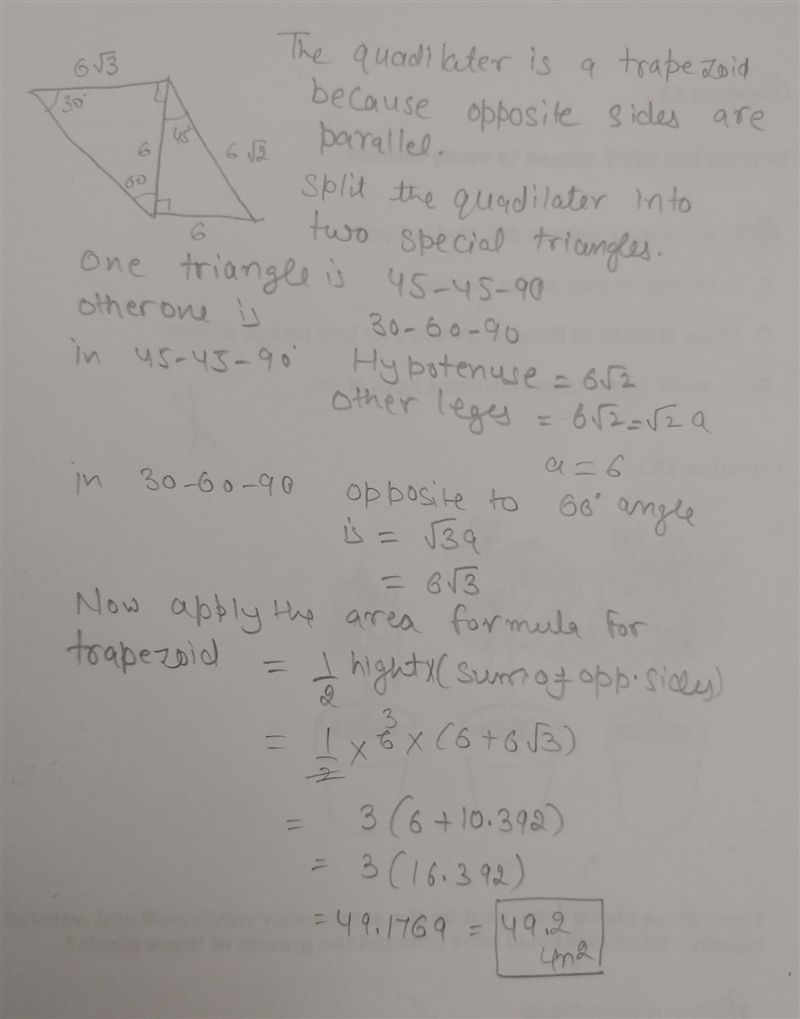 The quadilater is a trapezoid
because opposite sides are
parallel.
split the quadilater into
two special triangles.
6√3
30°
45°
6
6√2
60
6
One triangle is 45-45-90
otherone is 30-60-90
in 45-45-90° Hypotenuse = 6√2
Other leges = 6√2=√2 a
a=6
in 30-60-90 opposite to 60° angle
is = √3a
= 6√3
Now apply the area formula for
trapezoid = 1/2 hight×(sum of opp. sides)
= 1/2 × 6 3 × (6+6√3)
= 3(6+10.392)
= 3(16.392)
=49.1769 = 49.2